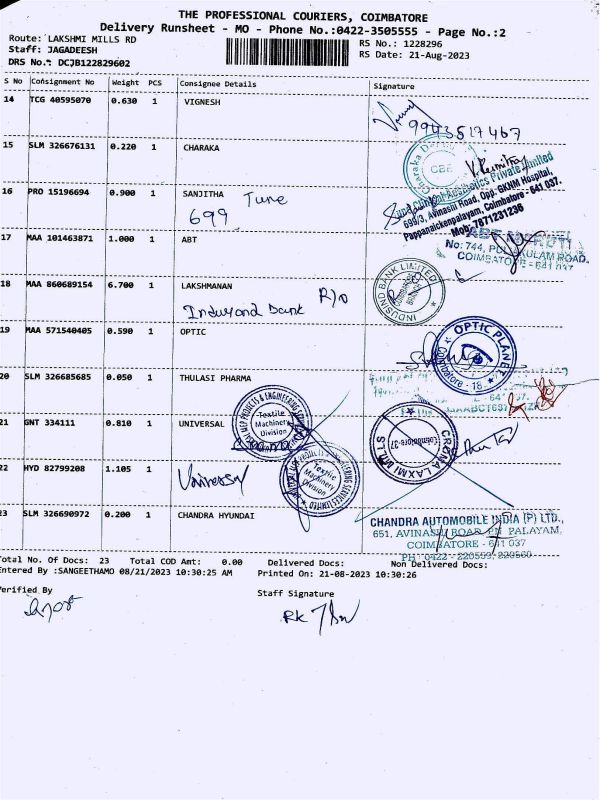 THE PROFESSIONAL COURIERS, COIMBATORE
Delivery Runsheet - MO - Phone No.:0422-3505555 - Page No.:2
Route: LAKSHMI MILLS RD
RS No.: 1228296
Staff: JAGADEESH
RS Date: 21-Aug-2023
DRS No.: DCJB122829602
S No Consignment No Weight PCS Consignee Details Signature
14 TCG 40595070 0.630 1 VIGNESH
9943517467
15 SLM 326676131 0.220 1 CHARAKA
CBE
Aesthetics Private Limited
699/3, Avinashi Road, Opp. GKNM Hospital,
Pappanaickenpalayam, Coimbatore - 641 037.
Mob: 7871231236
16 PRO 15196694 0.900 1 SANJITHA Tune
699
17 MAA 101463871 1.000 1 ABT
ABT MARUTI
No: 744, PULIAKULAM ROAD,
COIMBATORE - 641 037
18 MAA 860689154 6.700 1 LAKSHMANAN
Indusind Bank R/O
INDUSIND BANK LIMITED
19 MAA 571540405 0.590 1 OPTIC
OPTIC PLANET
Coimbatore - 18
20 SLM 326685685 0.050 1 THULASI PHARMA
21 GNT 334111 0.810 1 UNIVERSAL
Textile
Machinery
Division
Coimbatore-37
22 HYD 82799208 1.105 1 Universal
Textile
Machinery
Division
23 SLM 326690972 0.200 1 CHANDRA HYUNDAI
CHANDRA AUTOMOBILE INDIA (P) LTD.,
651, AVINASHI ROAD, PN PALAYAM,
COIMBATORE - 641 037
Total No. Of Docs: 23 Total COD Amt: 0.00 Delivered Docs: Non Delivered Docs:
Entered By :SANGEETHAMO 08/21/2023 10:30:25 AM Printed On: 21-08-2023 10:30:26
Verified By
Staff Signature